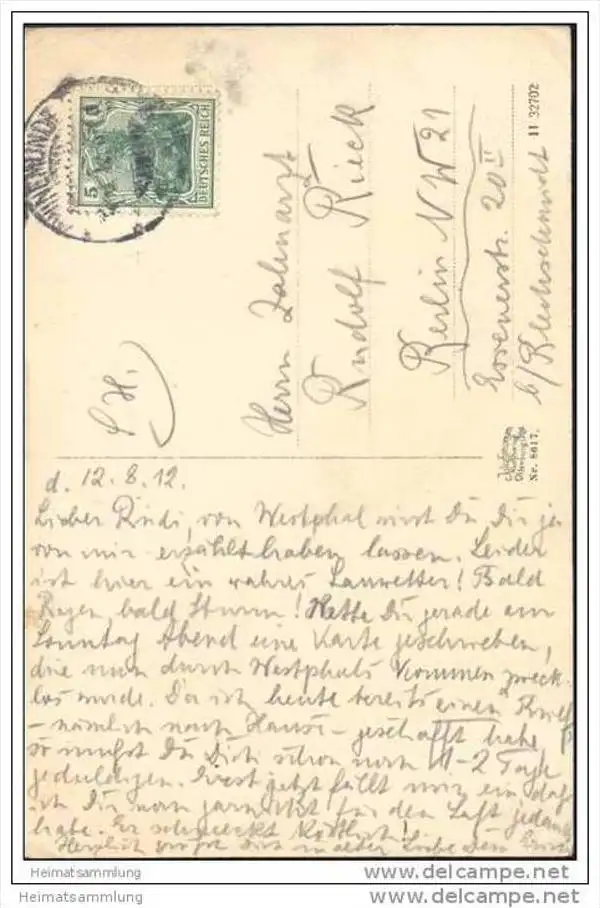 SWINEMÜNDE
5
5
DEUTSCHES REICH
Herrn Zahnarzt
Rudolf Rieck
Berlin NW 21
Essenerstr. 20 II
b/ Blechschmidt
11 32702
Nr. 8617.
d. 12.8.12.
Lieber Rudi, von Westphal wirst Du Dir ja
von mir erzählt haben lassen. Leider
ist hier ein wahres Sauwetter! Bald
Regen, bald Sturm! Hatte Dir gerade am
Sonntag Abend eine Karte geschrieben,
die nun durch Westphals Kommen zweck
los wurde. Da ich heute bereits einen Brief
- nämlich nach Hause - geschafft habe,
so mußt Du Dich schon noch 1-2 Tage
geduldigen. Erst jetzt fällt mir ein daß
ich Dir noch garnicht für den Saft gedankt
habe. Er schmeckt köstlich!
Herzlich grüßt Dich in alter Liebe Dein
delcampe.net
Heimatsammlung
delcampe.net
Heimatsammlung